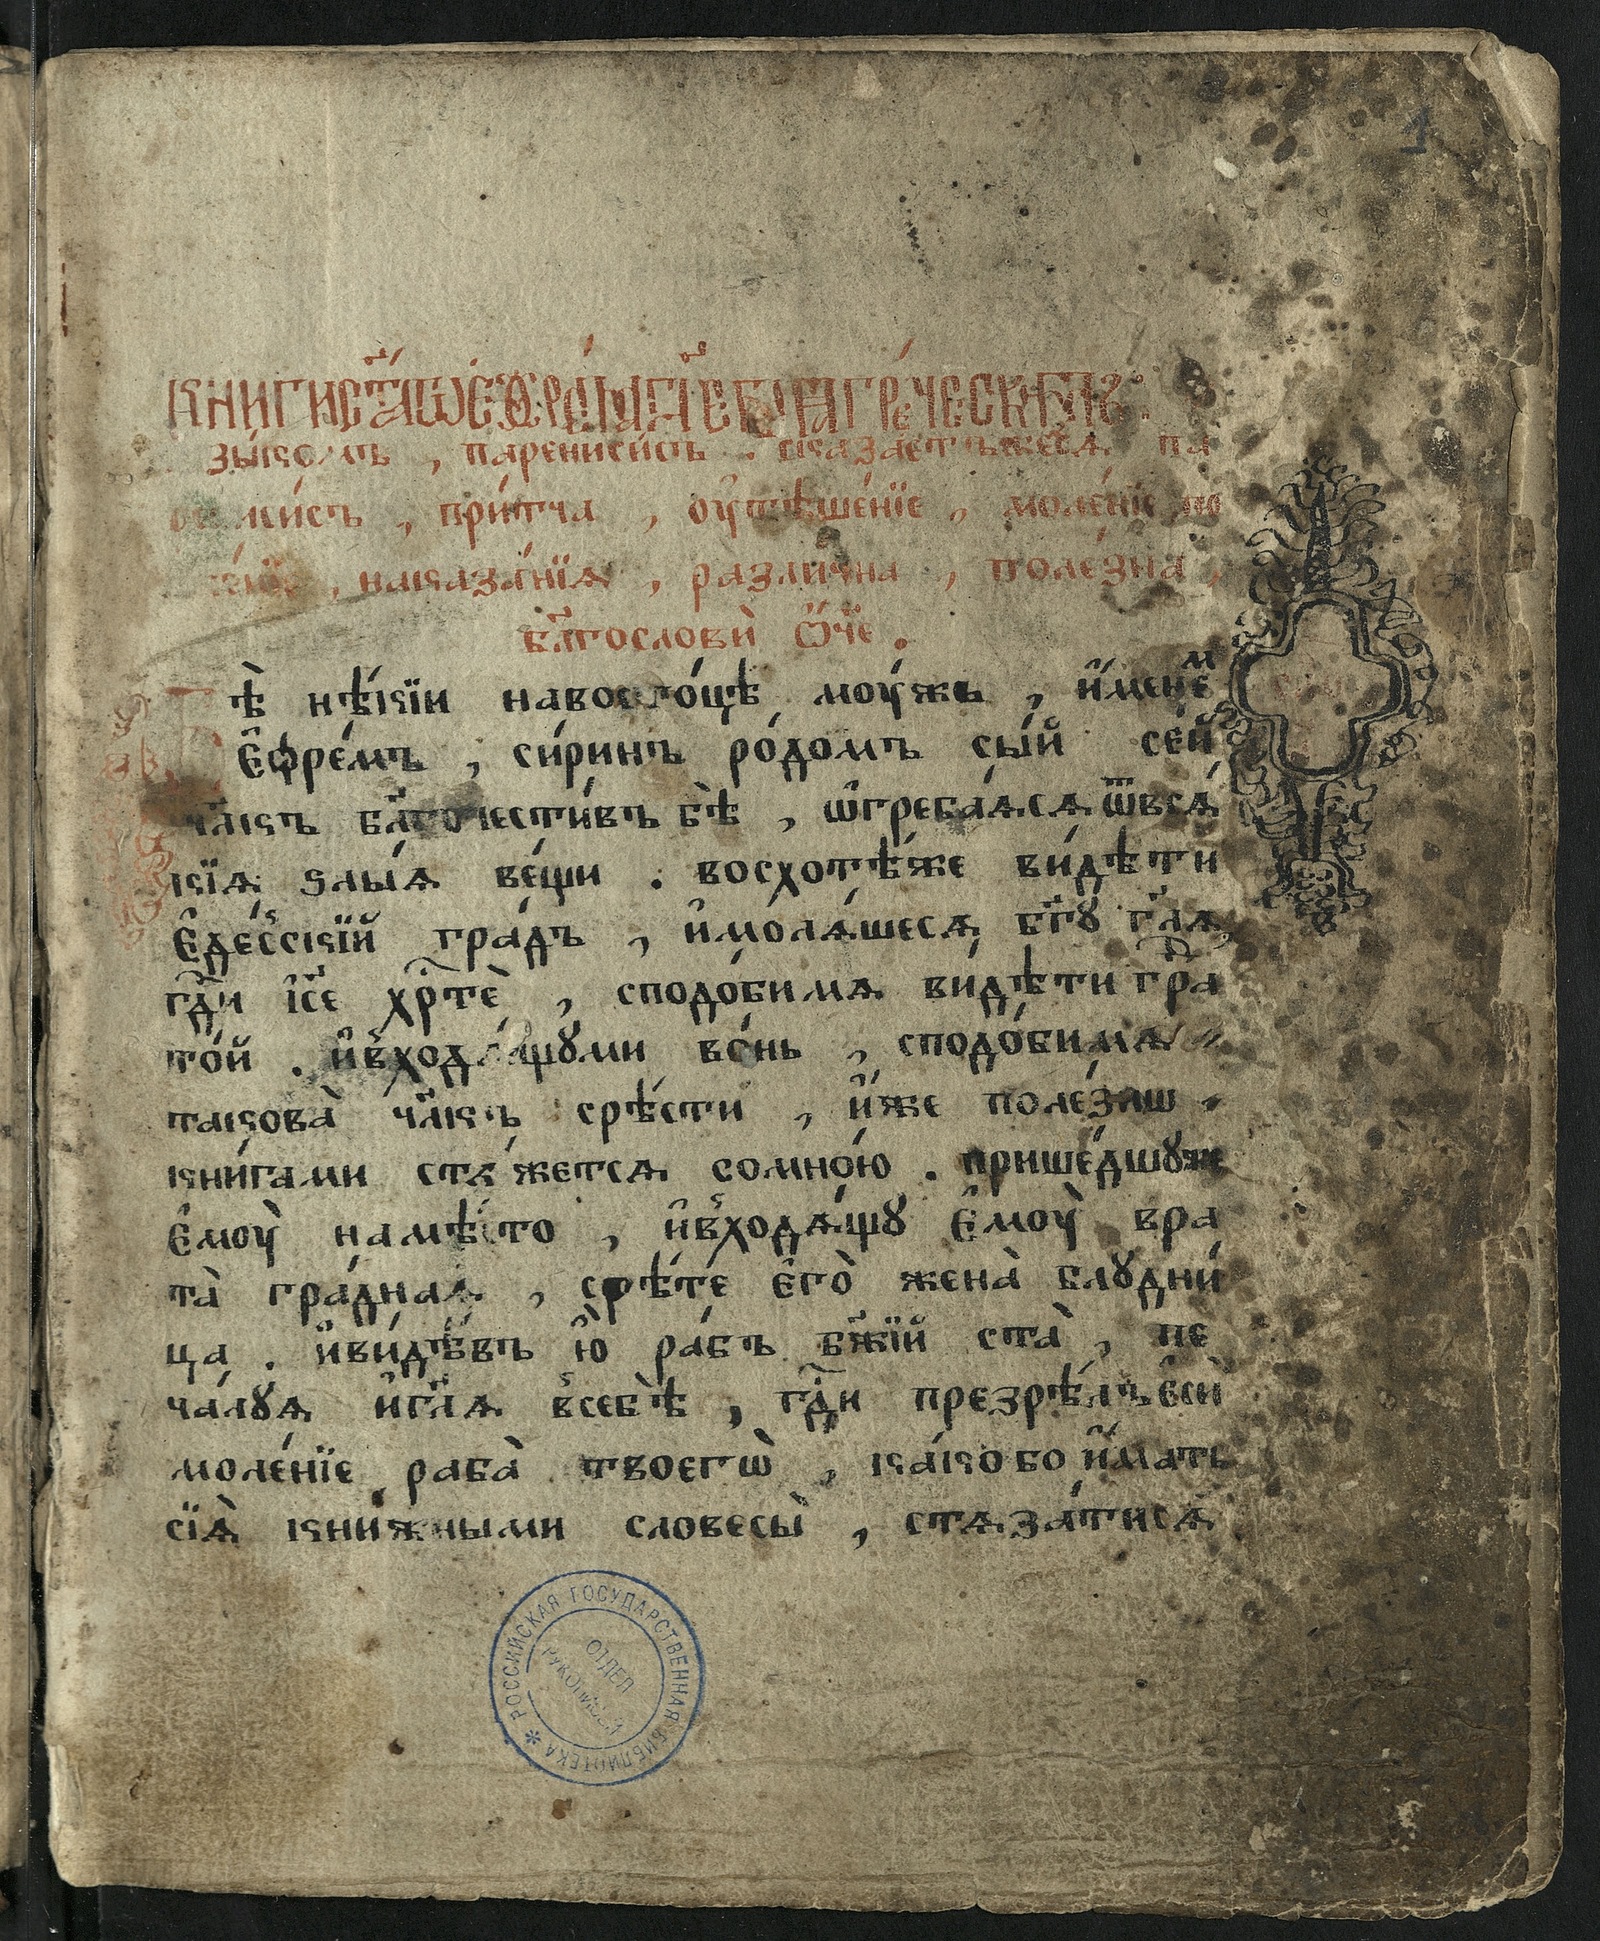 1
КНИГИ СТ҃АГѠ ЕФРЕМА ГЛ҃ЕМЫЯ ГРЕЧЕСКИМЪ
зы́комъ , паренисисъ . сказает же сѧ па
при́тча , ᲂутѣше́нїе , моле́нїе по
наказа́нїѧ , разли́чна , поле́зна ,
бл҃гословѝ ѿ҃че .
ѣ̀ нѣ́кїи навосто́цѣ мᲂу́жь , и҆́менем
є҆фре́мъ , си́ринъ ро́домъ сы́й се́й
чл҃къ бл҃гочести́въ бѣ̀ , ѡ҆греба́ѧсѧ ѿвсѧ́
кїѧ ѕлы́ѧ ве́щи . восхотѣ́же ви́дѣти
є҆де́сскїй гра́дъ , и҆молѧ́шесѧ бг҃ꙋ гл҃ѧ
гд҃и і҆с҃е хр҃тѐ , сподо́би мѧ ви́дѣти гра́д
то́й . и҆входѧ́щꙋми во́нь , сподо́би мѧ
такова̀ чл҃къ срѣ́сти , и҆́же поле́знѡ
кни́гами стѧ́жетсѧ сомно́ю . прише́дшꙋже
є҆мᲂу̀ намѣ́сто , и҆входѧ́щꙋ є҆мᲂу̀ вра
та̀ гра́днаѧ , срѣ́те є҆го̀ жена̀ блꙋдни́
ца . и҆ви́дѣвъ ю҆̀ ра́бъ бж҃їй ста̀ , пе
ча́лꙋѧ и҆гл҃ѧ в себѣ̀ , гд҃и презрѣ́лъ є҆сѝ
моле́нїе раба̀ твоегѡ̀ , ка́ко бо и҆́мать
сїѧ̀ кни́жными словесы̀ , стѧза́тисѧ
РОССИЙСКАЯ ГОСУДАРСТВЕННАЯ БИБЛИОТЕКА
ОТДЕЛ
РУКОПИСЕЙ